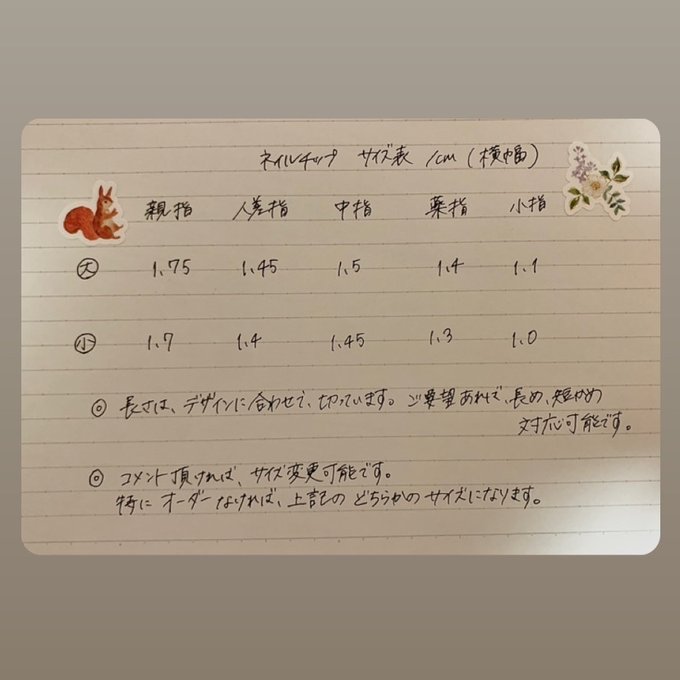 ネイルチップ サイズ表 /cm (横幅)
親指 人差指 中指 薬指 小指
大 1.75 1.45 1.5 1.4 1.1
小 1.7 1.4 1.45 1.3 1.0
◎ 長さは、デザインに合わせて、切っています。ご要望あれば、長め、短かめ
対応可能です。
◎ コメント頂ければ、サイズ変更可能です。
特にオーダーなければ、上記のどちらかのサイズになります。